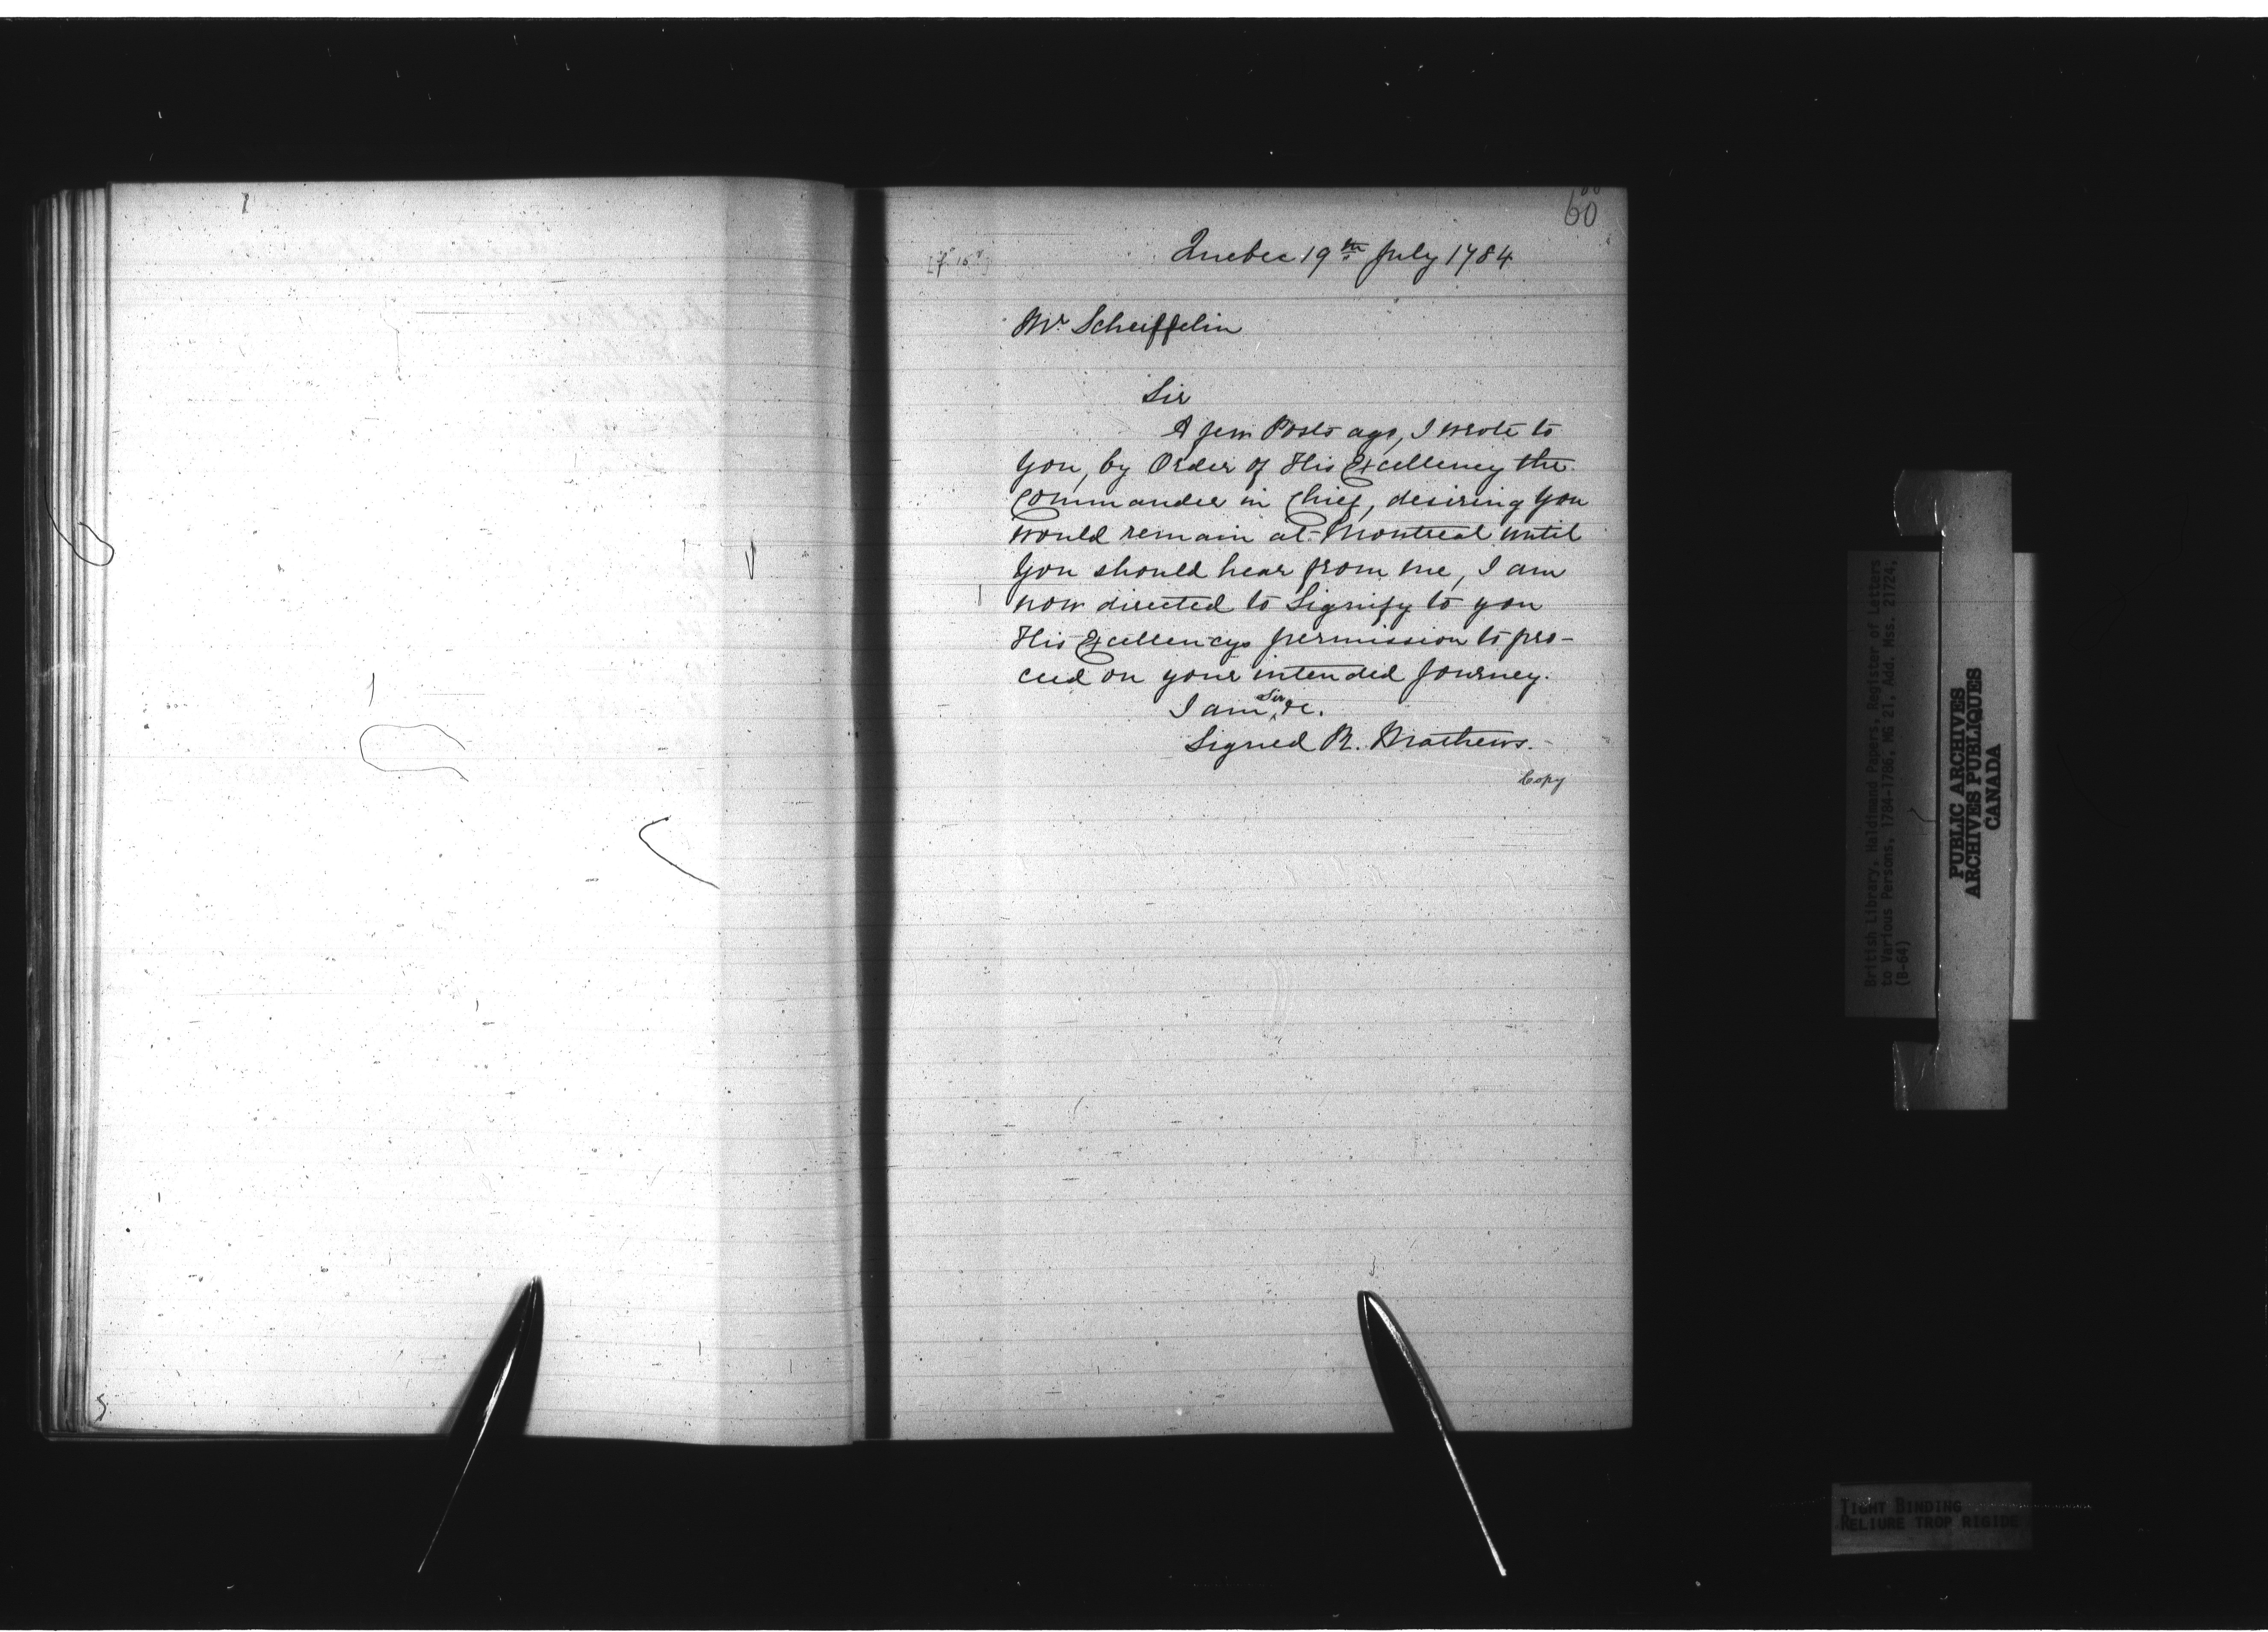 60
Quebec 19th July 1784
Mr. Scheiffelin
Sir
A few Posts ago, I wrote to
you, by Order of His Excellency the
Commander in Chief, desiring you
would remain at Montreal until
you should hear from me, I am
now directed to Signify to you
His Excellencys permission to pro-
ceed on your intended Journey.
I am Sir, &c.
Signed R. Mathews.-
Copy
British Library, Haldimand Papers, Register of Letters
to Various Persons, 1784-1786, MG 21, Add. Mss. 21724,
(B-64)
PUBLIC ARCHIVES
ARCHIVES PUBLIQUES
CANADA
TIGHT BINDING
RELIURE TROP RIGIDE